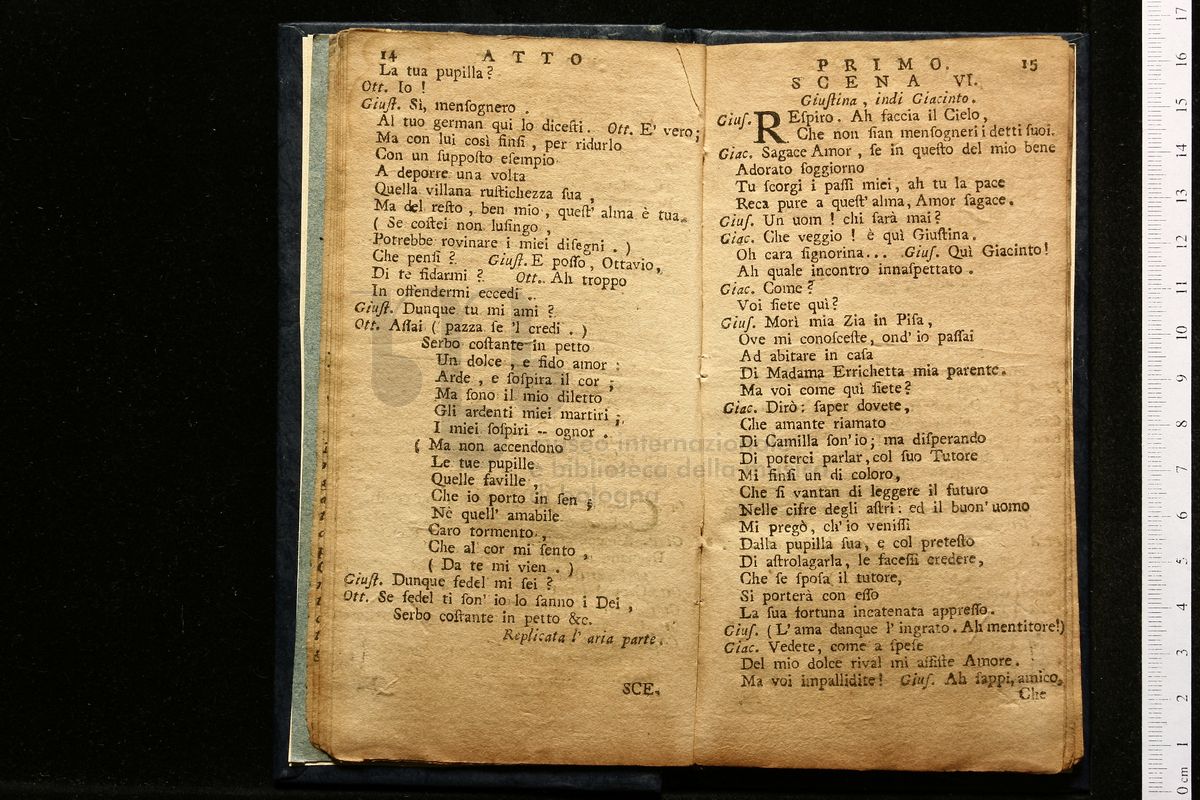 14 ATTO
La tua pupilla?
Ott. Io!
Giuſt. Sì, menſognero.
Al tuo german qui lo diceſti. Ott. E' vero;
Ma con lui così finſi, per ridurlo
Con un ſuppoſto eſempio
A deporre una volta
Quella villana ruſtichezza ſua,
Ma del reſto, ben mio, queſt' alma è tua.
( Se coſtei non luſingo,
Potrebbe rovinare i miei diſegni. )
Che penſi? Giuſt. E poſſo, Ottavio,
Di te fidarmi? Ott. Ah troppo
In offendermi eccedi.
Giuſt. Dunque tu mi ami?
Ott. Aſſai ( pazza ſe 'l credi. )
Serbo coſtante in petto
Un dolce, e fido amor:
Arde, e ſoſpira il cor;
Ma ſono il mio diletto
Gli ardenti miei martiri;
I miei ſoſpiri -- ognor.
( Ma non accendono
Le tue pupille
Quelle faville,
Che io porto in ſen;
Nè quell' amabile
Caro tormento,
Che al cor mi ſento,
( Da te mi vien. )
Giuſt. Dunque fedel mi ſei?
Ott. Se fedel ti ſon' io lo ſanno i Dei,
Serbo coſtante in petto &c.
Replicata l' aria parte.
SCE.
PRIMO. 15
SCENA VI.
Giuſtina, indi Giacinto.
Giuſ. REſpiro. Ah faccia il Cielo,
Che non ſian menſogneri i detti ſuoi.
Giac. Sagace Amor, ſe in queſto del mio bene
Adorato ſoggiorno
Tu ſcorgi i paſſi miei, ah tu la pace
Reca pure a queſt' alma, Amor ſagace.
Giuſ. Un uom! chi ſarà mai?
Giac. Che veggio! è quì Giuſtina.
Oh cara ſignorina... Giuſ. Quì Giacinto!
Ah quale incontro innaſpettato.
Giac. Come?
Voi ſiete quì?
Giuſ. Morì mia Zia in Piſa,
Ove mi conoſceſte, ond' io paſſai
Ad abitare in caſa
Di Madama Errichetta mia parente.
Ma voi come quì ſiete?
Giac. Dirò: ſaper dovete,
Che amante riamato
Di Camilla ſon' io; ma diſperando
Di poterci parlar, col ſuo Tutore
Mi finſi un di coloro,
Che ſi vantan di leggere il futuro
Nelle cifre degli aſtri: ed il buon' uomo
Mi pregò, ch' io veniſſi
Dalla pupilla ſua, e col preteſto
Di aſtrolagarla, le faceſſi credere,
Che ſe ſpoſa il tutore,
Si porterà con eſſo
La ſua fortuna incatenata appreſſo.
Giuſ. ( L' ama dunque l' ingrato. Ah mentitore!)
Giac. Vedete, come a ſpeſe
Del mio dolce rival mi aſſiſte Amore.
Ma voi impallidite! Giuſ. Ah ſappi, amico,
Che
museo internazionale
e biblioteca della musica
di bologna
0 cm 1 2 3 4 5 6 7 8 9 10 11 12 13 14 15 16 17